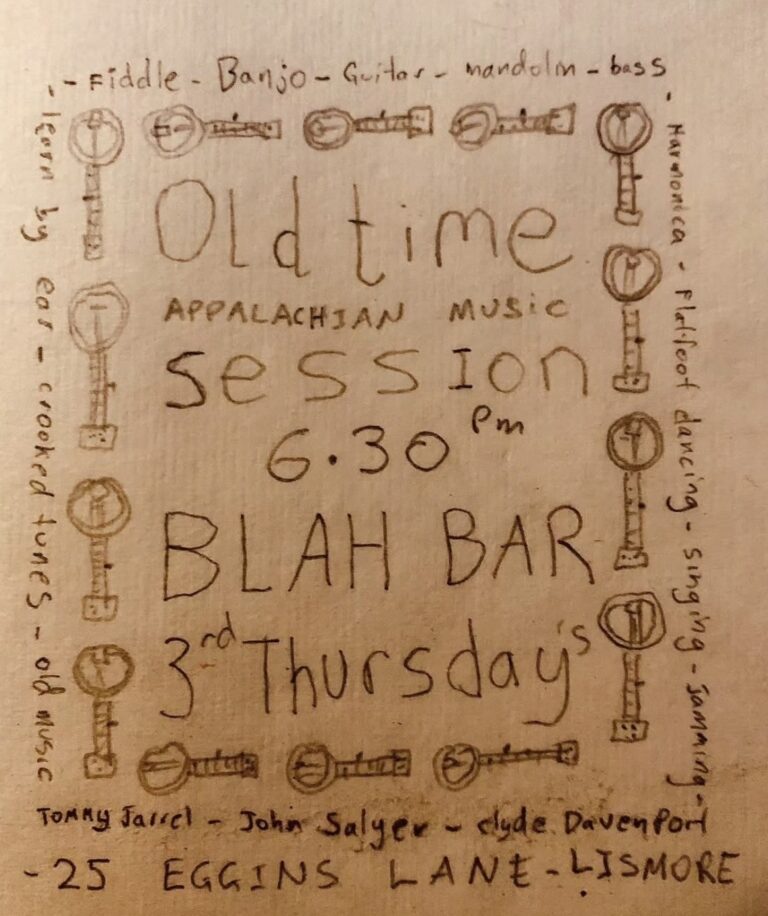 - Fiddle - Banjo - Guitar - mandolin - bass
- Harmonica - Flat-foot dancing - singing - Jamming -
- learn by ear - crooked tunes - old music
Old time
APPALACHIAN MUSic
session
6.30 Pm
BLAH BAR
3rd Thursday's
TOMMY Jarrel - John Salyer - clyde DavenPort
- 25 EGGINS LANE - LISMORE